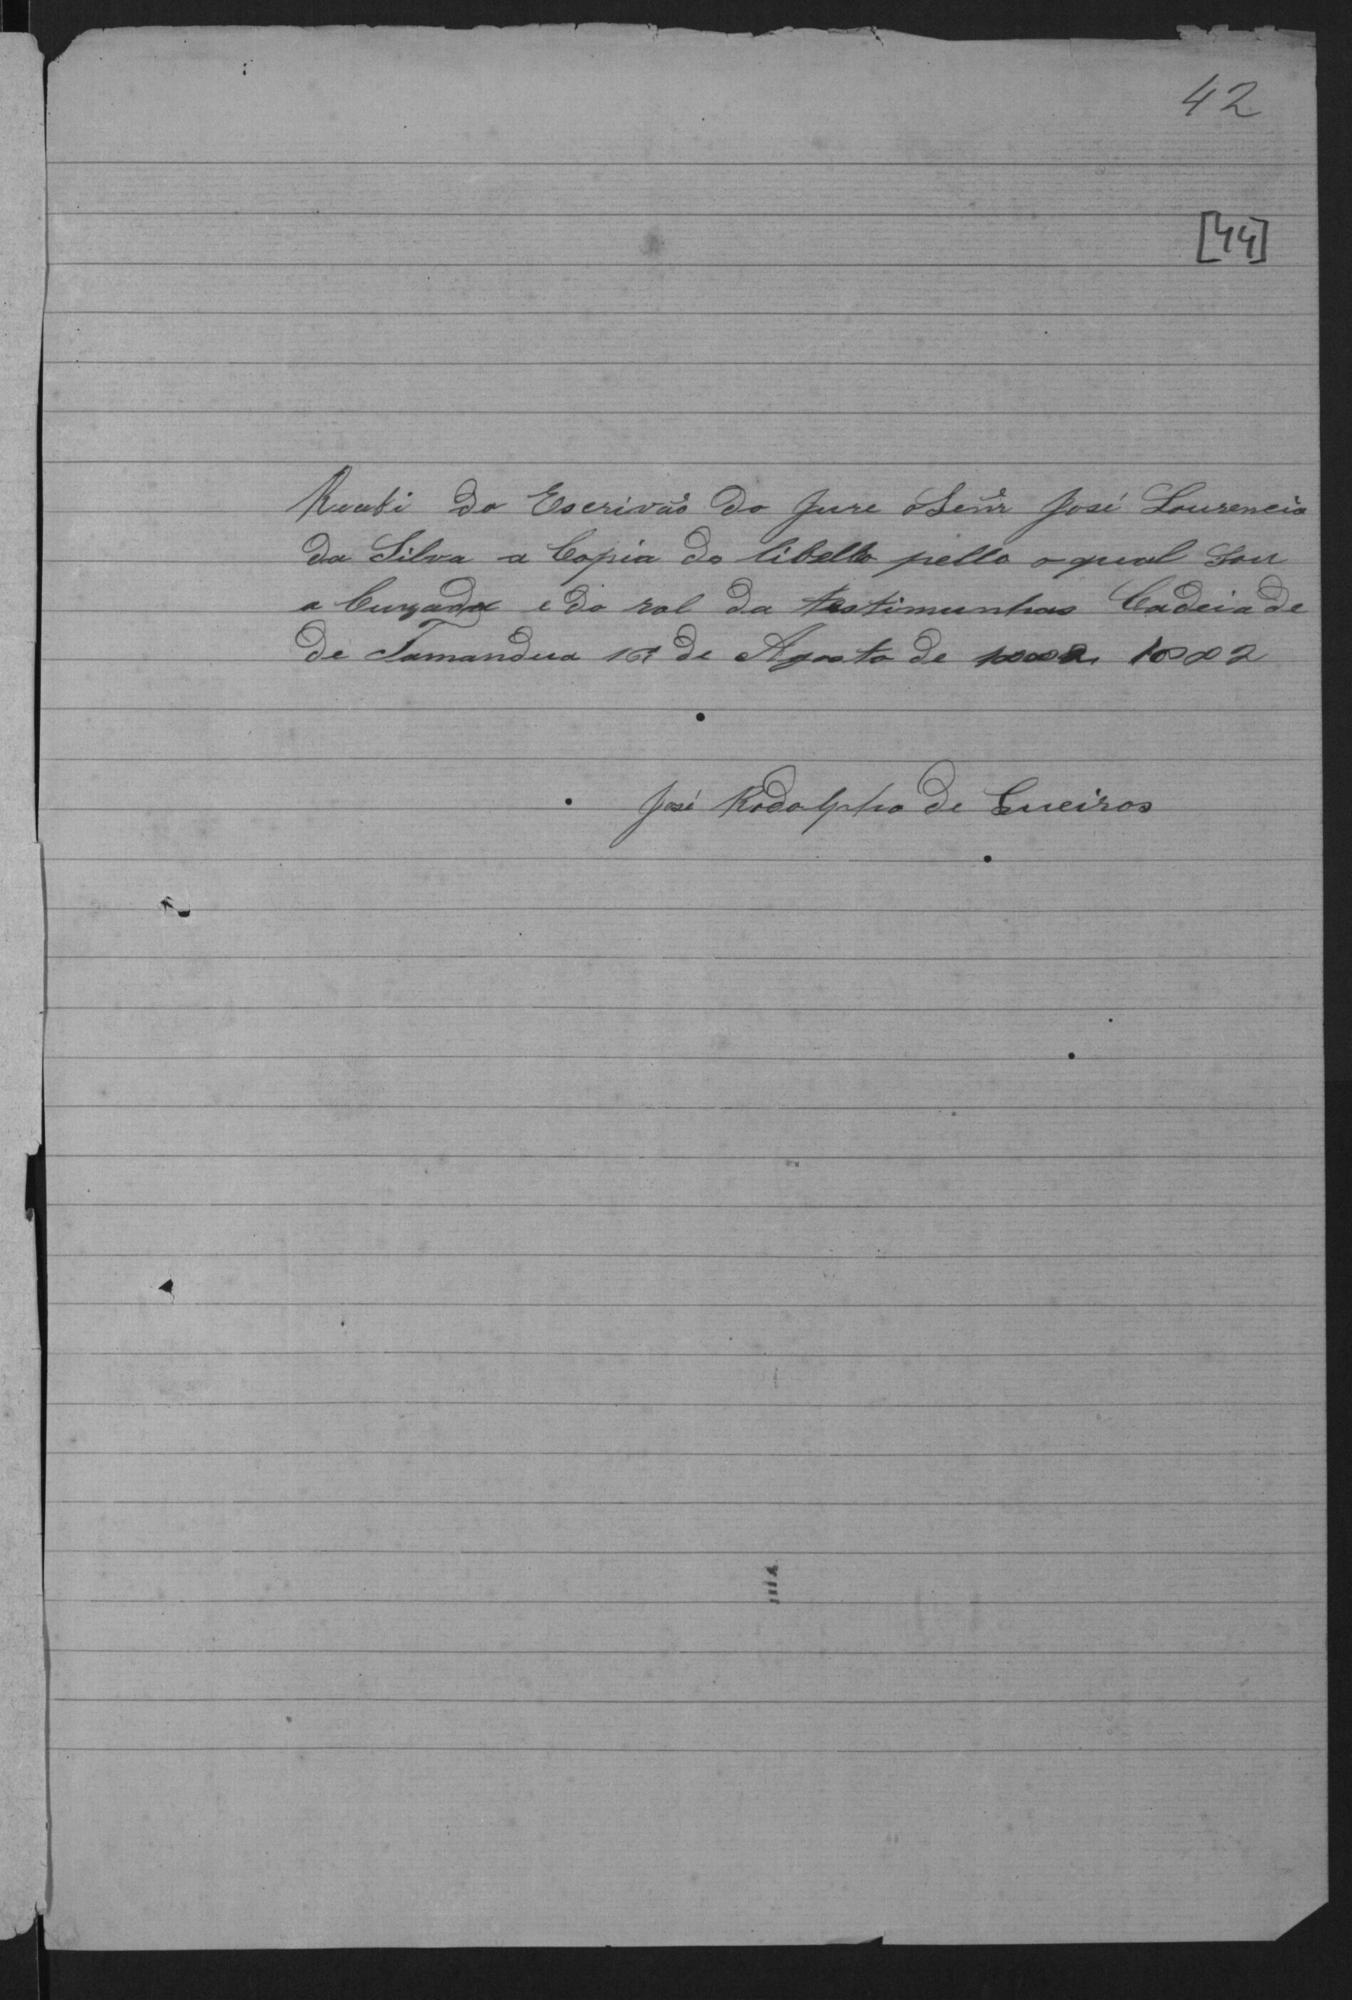 42
[44]
Recebi do Escrivão do Jure o Senr José Lourencio
da Silva a Copia do libello pello o qual Sou
a Cuzado e do rol da testimunhas Cadeia de
de Tamandua de Agosto de 1882
José Rodolpho de Queiros